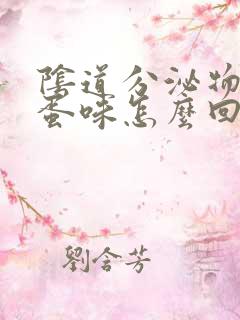 陰道分泌物
蛋味怎麼回
劉含芳